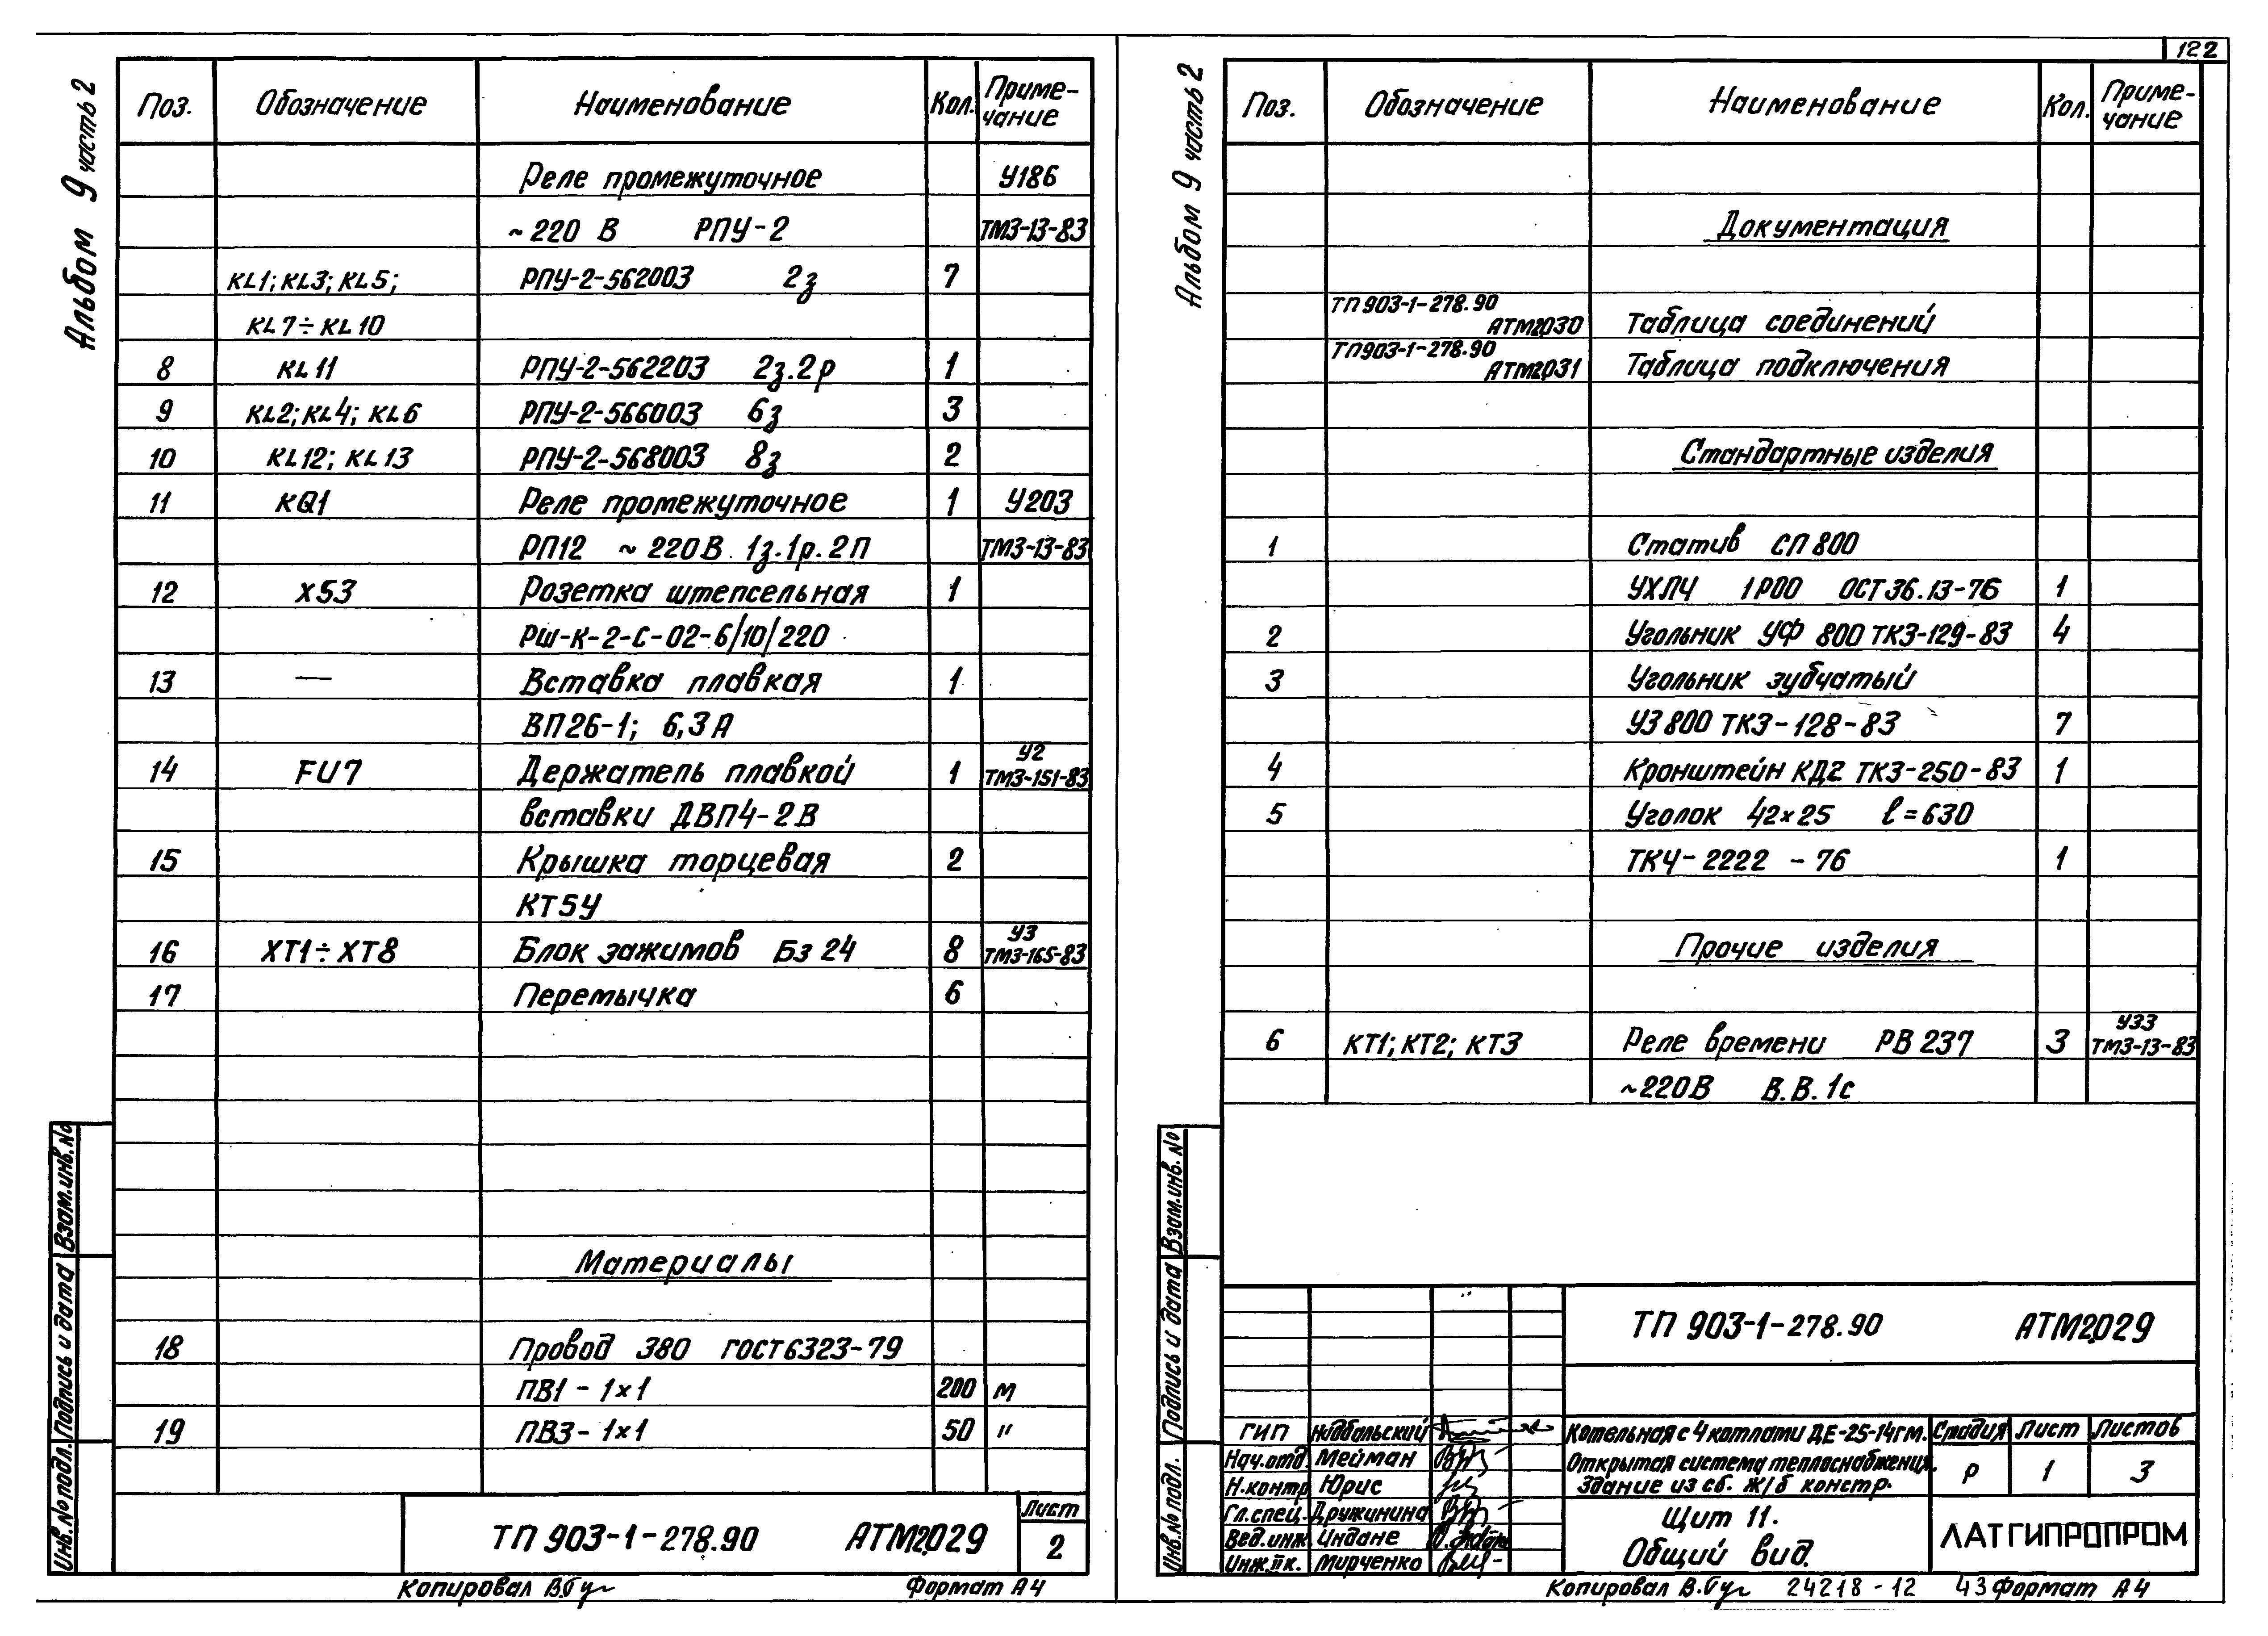 Альбом 9 часть 2
Поз. Обозначение Наименование Кол. Приме-
чание
Реле промежуточное У186
~220 В РПУ-2 ТМ3-13-83
KL1; KL3; KL5; РПУ-2-562003 2з 7
KL7÷KL10
8 KL11 РПУ-2-562203 2з.2р 1
9 KL2; KL4; KL6 РПУ-2-566003 6з 3
10 KL12; KL13 РПУ-2-568003 8з 2
11 KQ1 Реле промежуточное 1 У203
РП12 ~220В 1з.1р.2П ТМ3-13-83
12 XS3 Розетка штепсельная 1
РШ-К-2-С-02-6/10/220
13 — Вставка плавкая 1
ВП26-1; 6,3А
14 FU7 Держатель плавкой 1 У2 ТМ3-151-83
вставки ДВП4-2В
15 Крышка торцевая 2
КТ5У
16 XT1÷XT8 Блок зажимов БЗ 24 8 У3 ТМ3-165-83
17 Перемычка 6
Материалы
18 Провод 380 ГОСТ 6323-79
ПВ1-1×1 200 м
19 ПВ3-1×1 50 "
Взам.инв.№
Подпись и дата
Инв.№ подл.
ТП 903-1-278.90 АТМ2.029
Лист
2
Копировал Формат А4
122
Альбом 9 часть 2
Поз. Обозначение Наименование Кол. Приме-
чание
Документация
ТП 903-1-278.90
АТМ2.030 Таблица соединений
ТП903-1-278.90
АТМ2.031 Таблица подключения
Стандартные изделия
1 Статив СП 800
УХЛ4 1Р00 ОСТ 36.13-76 1
2 Угольник УФ 800 ТК3-129-83 4
3 Угольник зубчатый
УЗ 800 ТК3-128-83 7
4 Кронштейн КД2 ТК3-250-83 1
5 Уголок 42×25 ℓ=630
ТК4-2222-76 1
Прочие изделия
6 КТ1; КТ2; КТ3 Реле времени РВ 237 3 У33 ТМ3-13-83
~220В В.В.1с
Взам.инв.№
Подпись и дата
Инв.№ подл.
ТП 903-1-278.90 АТМ2.029
ГИП
Нач.отд. Мейман
Н.контр Юрис
Гл.спец. Дружинина
Вед.инж Индане
Инж.IIк. Мирченко
Котельная с 4 котлами ДЕ-25-14ГМ.
Открытая система теплоснабжения.
Здание из сб. ж/б констр.
Стадия Лист Листов
Р 1 3
Щит 11.
Общий вид.
ЛАТГИПРОПРОМ
Копировал 24218-12 43 Формат А4